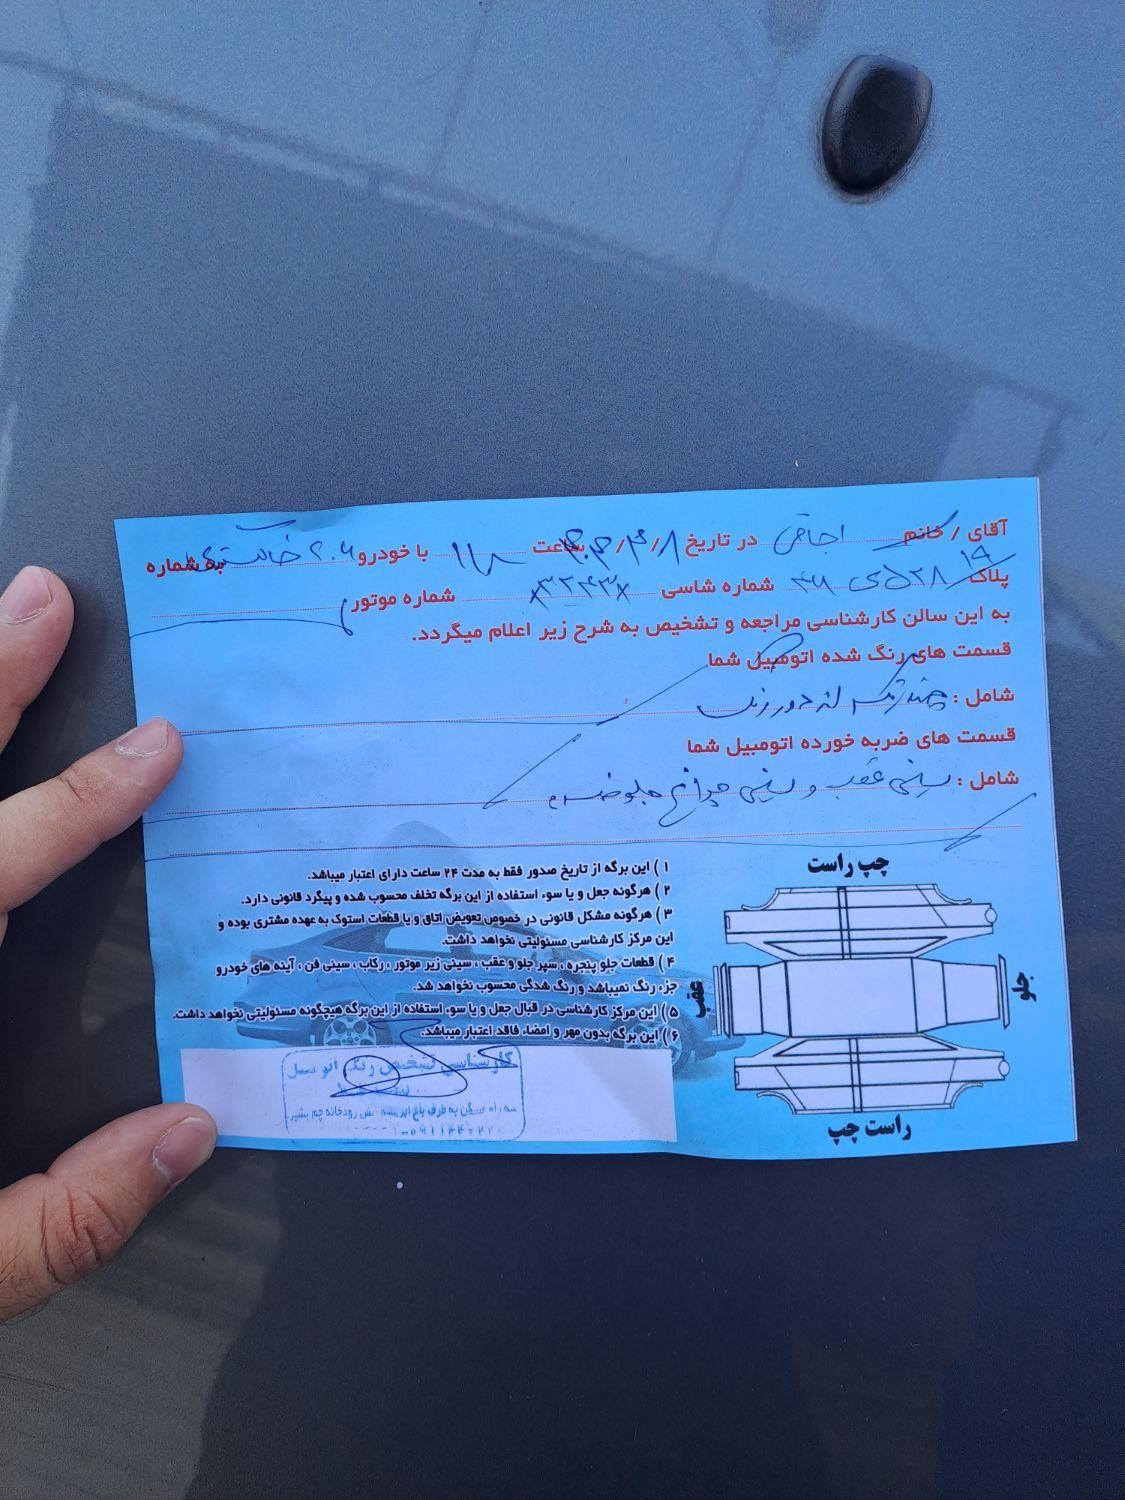 آقای / خانم اجاقی در تاریخ ساعت با خودرو ۲۰۶ به شماره
پلاک شماره شاسی شماره موتور
به این سالن کارشناسی مراجعه و تشخیص به شرح زیر اعلام میگردد.
قسمت های رنگ شده اتومبیل شما
شامل : دور رنگ
قسمت های ضربه خورده اتومبیل شما
شامل : سینی عقب و سینی چراغ جلو
۱ ) این برگه از تاریخ صدور فقط به مدت ۲۴ ساعت دارای اعتبار میباشد.
۲ ) هرگونه جعل و یا سوء استفاده از این برگه تخلف محسوب شده و پیگرد قانونی دارد.
۳ ) هرگونه مشکل قانونی در خصوص تعویض اتاق و یا قطعات استوک به عهده مشتری بوده و
این مرکز کارشناسی مسئولیتی نخواهد داشت.
۴ ) قطعات جلو پنجره ، سپر جلو و عقب ، سینی زیر موتور ، رکاب ، سینی فن ، آینه های خودرو
جزء رنگ نمیباشد و رنگ شدگی محسوب نخواهد شد.
۵ ) این مرکز کارشناسی در قبال جعل و یا سوء استفاده از این برگه هیچگونه مسئولیتی نخواهد داشت.
۶ ) این برگه بدون مهر و امضاء فاقد اعتبار میباشد.
چپ راست
جلو
عقب
راست چپ
کارشناسی تشخیص رنگ